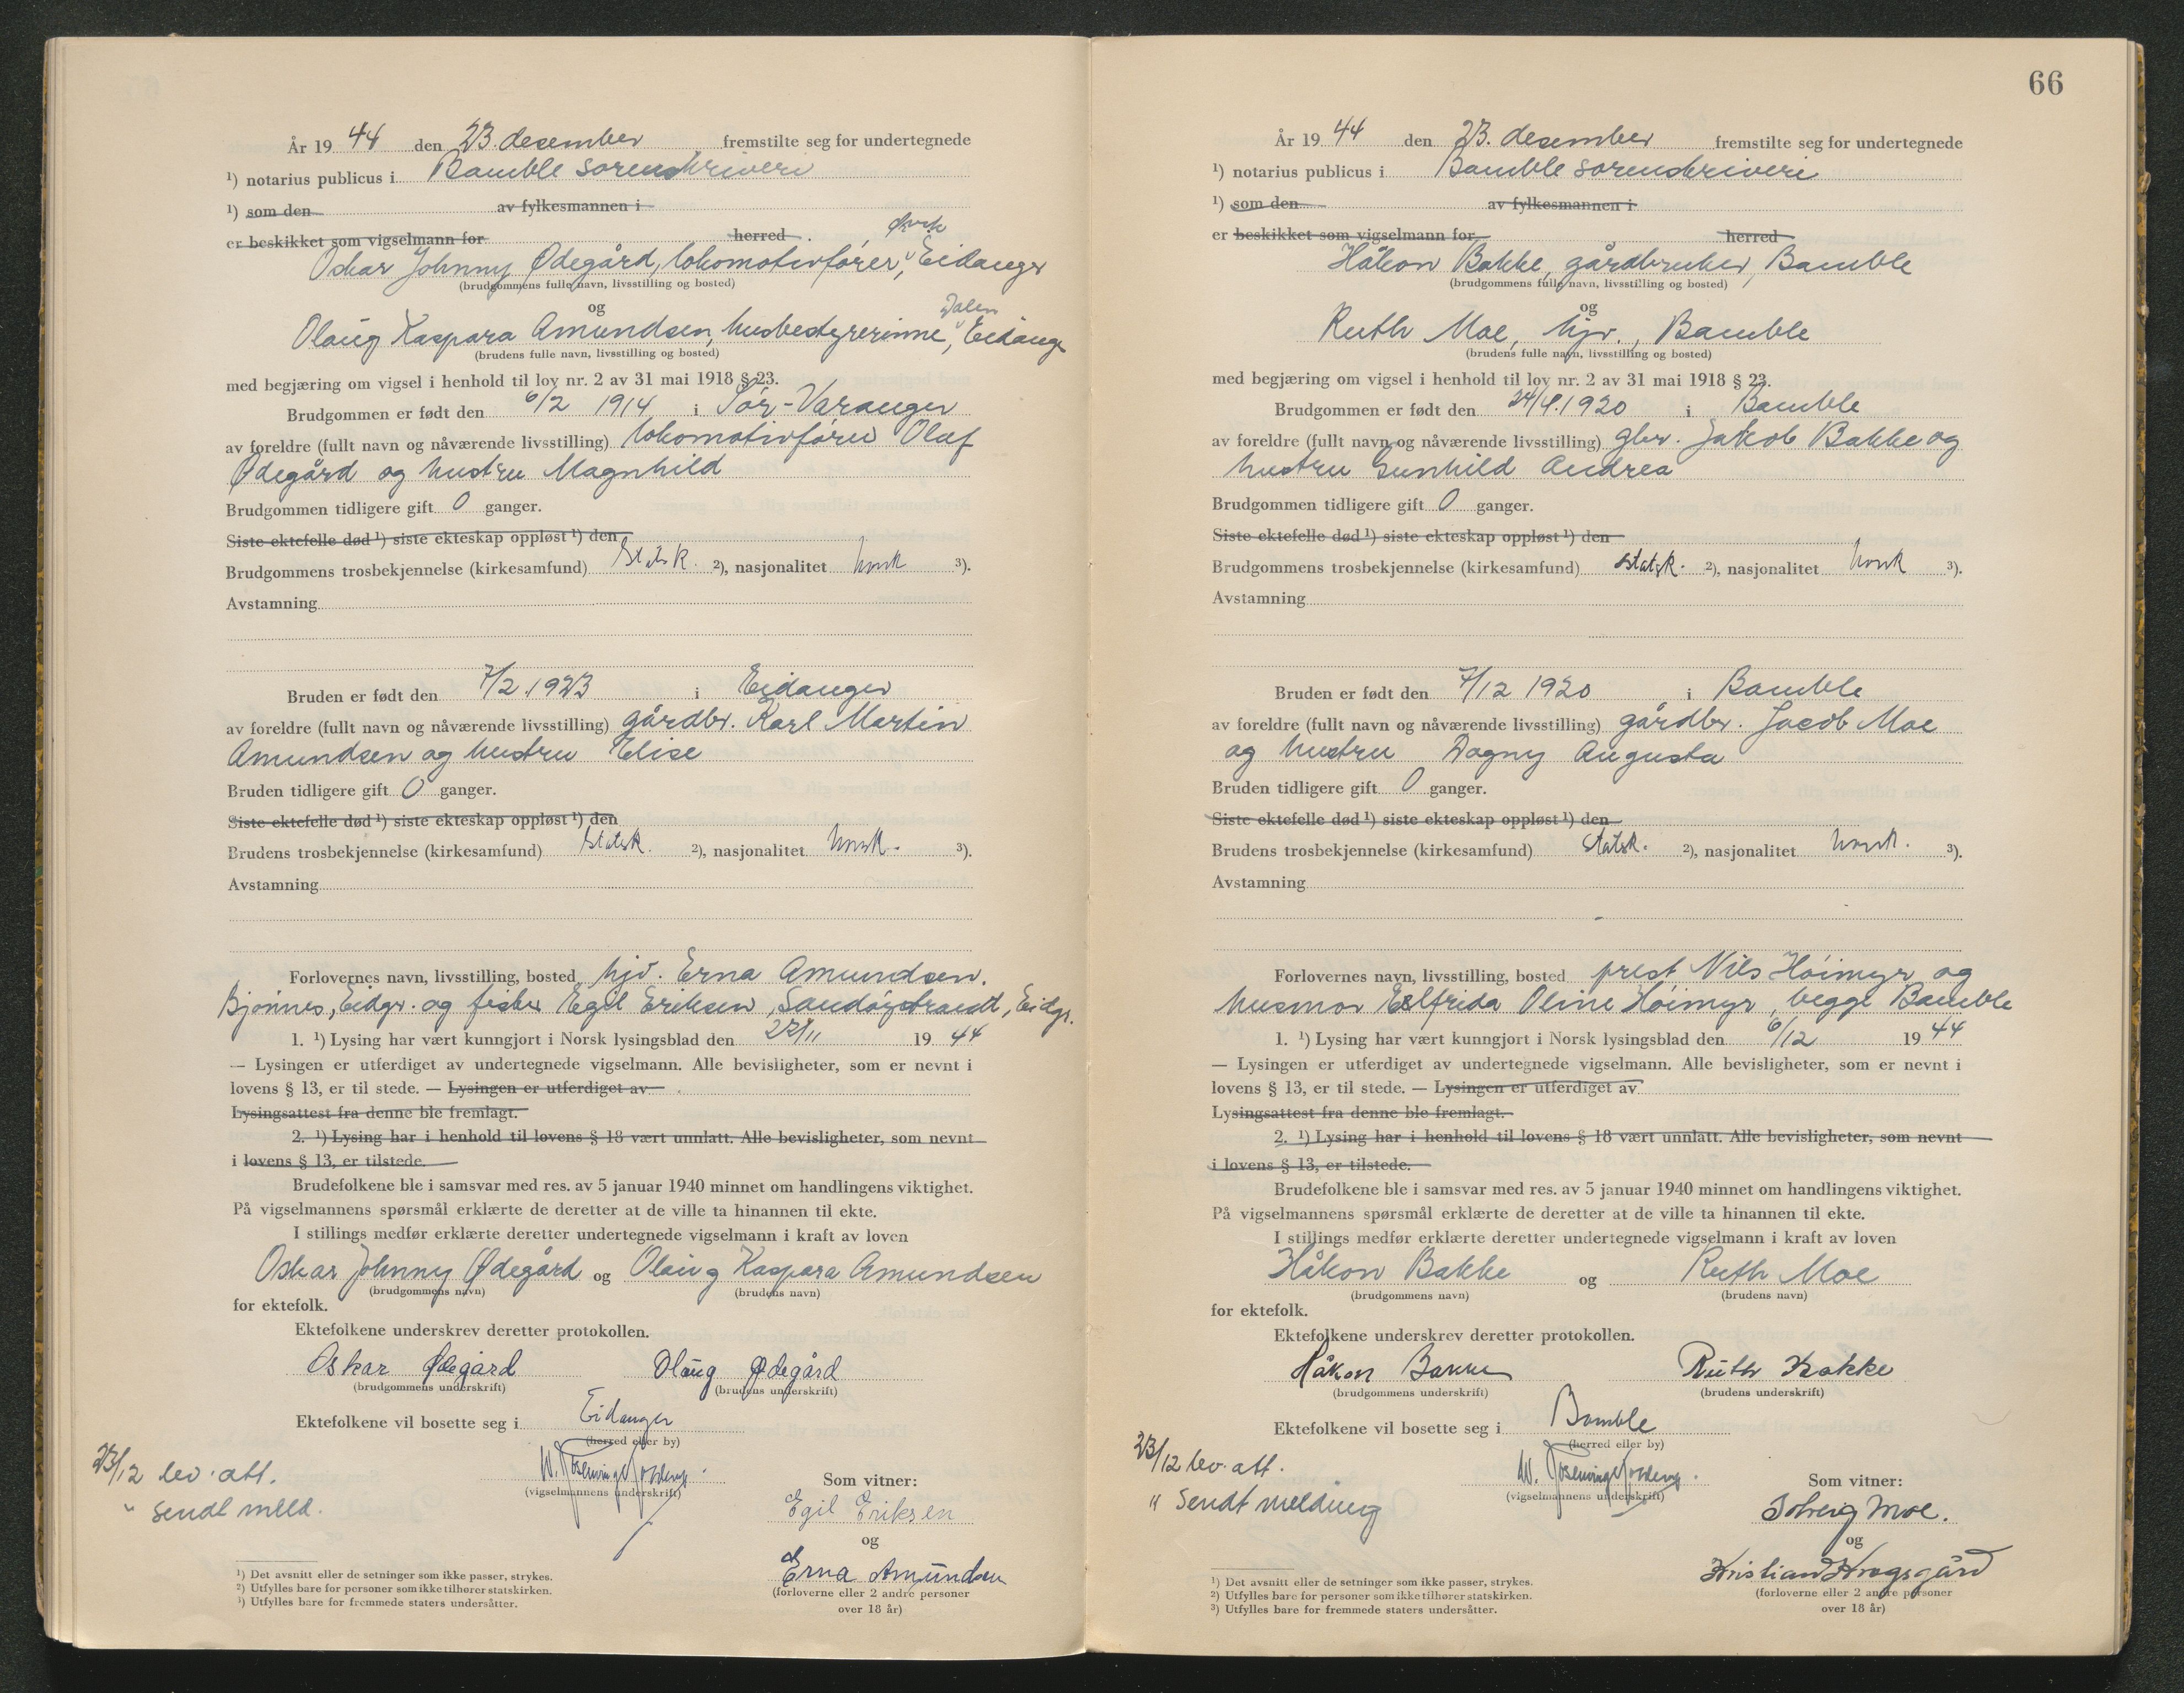 År 1944 den 23. desember fremstilte seg for undertegnede
¹) notarius publicus i Bamble sorenskriveri
¹) som den av fylkesmannen i
er beskikket som vigselmann for herred .
Oskar Johnny Ødegård, lokomotivfører, Eidanger
(brudgommens fulle navn, livsstilling og bosted)
og
Dalen
Olaug Kaspara Amundsen, husbestyrerinne, Eidanger
(brudens fulle navn, livsstilling og bosted)
med begjæring om vigsel i henhold til lov nr. 2 av 31 mai 1918 § 23.
Brudgommen er født den 6/2 1914 i Sør-Varanger
av foreldre (fullt navn og nåværende livsstilling) lokomotivfører Olaf
Ødegård og hustru Magnhild
Brudgommen tidligere gift 0 ganger.
Siste ektefelle død ¹) siste ekteskap oppløst ¹) den
Brudgommens trosbekjennelse (kirkesamfund) Statsk. ²), nasjonalitet norsk ³).
Avstamning
Bruden er født den 7/2.1923 i Eidanger
av foreldre (fullt navn og nåværende livsstilling) gårdbr. Karl Martin
Amundsen og hustru Elise
Bruden tidligere gift 0 ganger.
Siste ektefelle død ¹) siste ekteskap oppløst ¹) den
Brudens trosbekjennelse (kirkesamfund) statsk. ²), nasjonalitet norsk. ³).
Avstamning
Forlovernes navn, livsstilling, bosted hjv. Erna Amundsen.
Bjønnes, Eidgr. og fisker Egil Eriksen, Sandøystrandt, Eidgr.
1. ¹) Lysing har vært kunngjort i Norsk lysingsblad den 1944
— Lysingen er utferdiget av undertegnede vigselmann. Alle bevisligheter, som er nevnt i
lovens § 13, er til stede. — Lysingen er utferdiget av
Lysingsattest fra denne ble fremlagt.
2. ¹) Lysing har i henhold til lovens § 18 vært unnlatt. Alle bevisligheter, som nevnt
i lovens § 13, er tilstede.
Brudefolkene ble i samsvar med res. av 5 januar 1940 minnet om handlingens viktighet.
På vigselmannens spørsmål erklærte de deretter at de ville ta hinannen til ekte.
I stillings medfør erklærte deretter undertegnede vigselmann i kraft av loven
Oskar Johnny Ødegård og Olaug Kaspara Amundsen
(brudgommens navn) (brudens navn)
for ektefolk.
Ektefolkene underskrev deretter protokollen.
Oskar Ødegård Olaug Ødegård
(brudgommens underskrift) (brudens underskrift)
Ektefolkene vil bosette seg i Eidanger
(herred eller by)
23/12 lev. att.
(vigselmannens underskrift) Som vitner:
" sendt meld.
Egil Eriksen
og
Erna Amundsen
(forloverne eller 2 andre personer
over 18 år)
¹) Det avsnitt eller de setninger som ikke passer, strykes.
²) Utfylles bare for personer som ikke tilhører statskirken.
³) Utfylles bare for fremmede staters undersåtter.
66
År 1944 den 23. desember fremstilte seg for undertegnede
¹) notarius publicus i Bamble sorenskriveri
¹) som den av fylkesmannen i
er beskikket som vigselmann for herred
Håkon Bakke, gårdbruker, Bamble
(brudgommens fulle navn, livsstilling og bosted)
og
Ruth Moe, hjv., Bamble
(brudens fulle navn, livsstilling og bosted)
med begjæring om vigsel i henhold til lov nr. 2 av 31 mai 1918 § 23.
Brudgommen er født den 24/4.1920 i Bamble
av foreldre (fullt navn og nåværende livsstilling) gbr. Jakob Bakke og
hustru Gunhild Andrea
Brudgommen tidligere gift 0 ganger.
Siste ektefelle død ¹) siste ekteskap oppløst ¹) den
Brudgommens trosbekjennelse (kirkesamfund) statsk. ²), nasjonalitet norsk ³).
Avstamning
Bruden er født den 7/12 1920 i Bamble
av foreldre (fullt navn og nåværende livsstilling) gårdbr. Jacob Moe
og hustru Dagny Augusta
Bruden tidligere gift 0 ganger.
Siste ektefelle død ¹) siste ekteskap oppløst ¹) den
Brudens trosbekjennelse (kirkesamfund) statsk. ²), nasjonalitet norsk. ³).
Avstamning
Forlovernes navn, livsstilling, bosted prest Nils Høimyr og
husmor Elfrida Oline Høimyr, begge Bamble
1. ¹) Lysing har vært kunngjort i Norsk lysingsblad den 6/12 1944
— Lysingen er utferdiget av undertegnede vigselmann. Alle bevisligheter, som er nevnt i
lovens § 13, er til stede. — Lysingen er utferdiget av
Lysingsattest fra denne ble fremlagt.
2. ¹) Lysing har i henhold til lovens § 18 vært unnlatt. Alle bevisligheter, som nevnt
i lovens § 13, er tilstede.
Brudefolkene ble i samsvar med res. av 5 januar 1940 minnet om handlingens viktighet.
På vigselmannens spørsmål erklærte de deretter at de ville ta hinannen til ekte.
I stillings medfør erklærte deretter undertegnede vigselmann i kraft av loven
Håkon Bakke og Ruth Moe
(brudgommens navn) (brudens navn)
for ektefolk.
Ektefolkene underskrev deretter protokollen.
Håkon Bakke Ruth Bakke
(brudgommens underskrift) (brudens underskrift)
Ektefolkene vil bosette seg i Bamble
(herred eller by)
23/12 lev. att.
(vigselmannens underskrift) Som vitner:
" sendt melding
Solveig Moe.
og
Kristian Krogsgård
(forloverne eller 2 andre personer
over 18 år)
¹) Det avsnitt eller de setninger som ikke passer, strykes.
²) Utfylles bare for personer som ikke tilhører statskirken.
³) Utfylles bare for fremmede staters undersåtter.